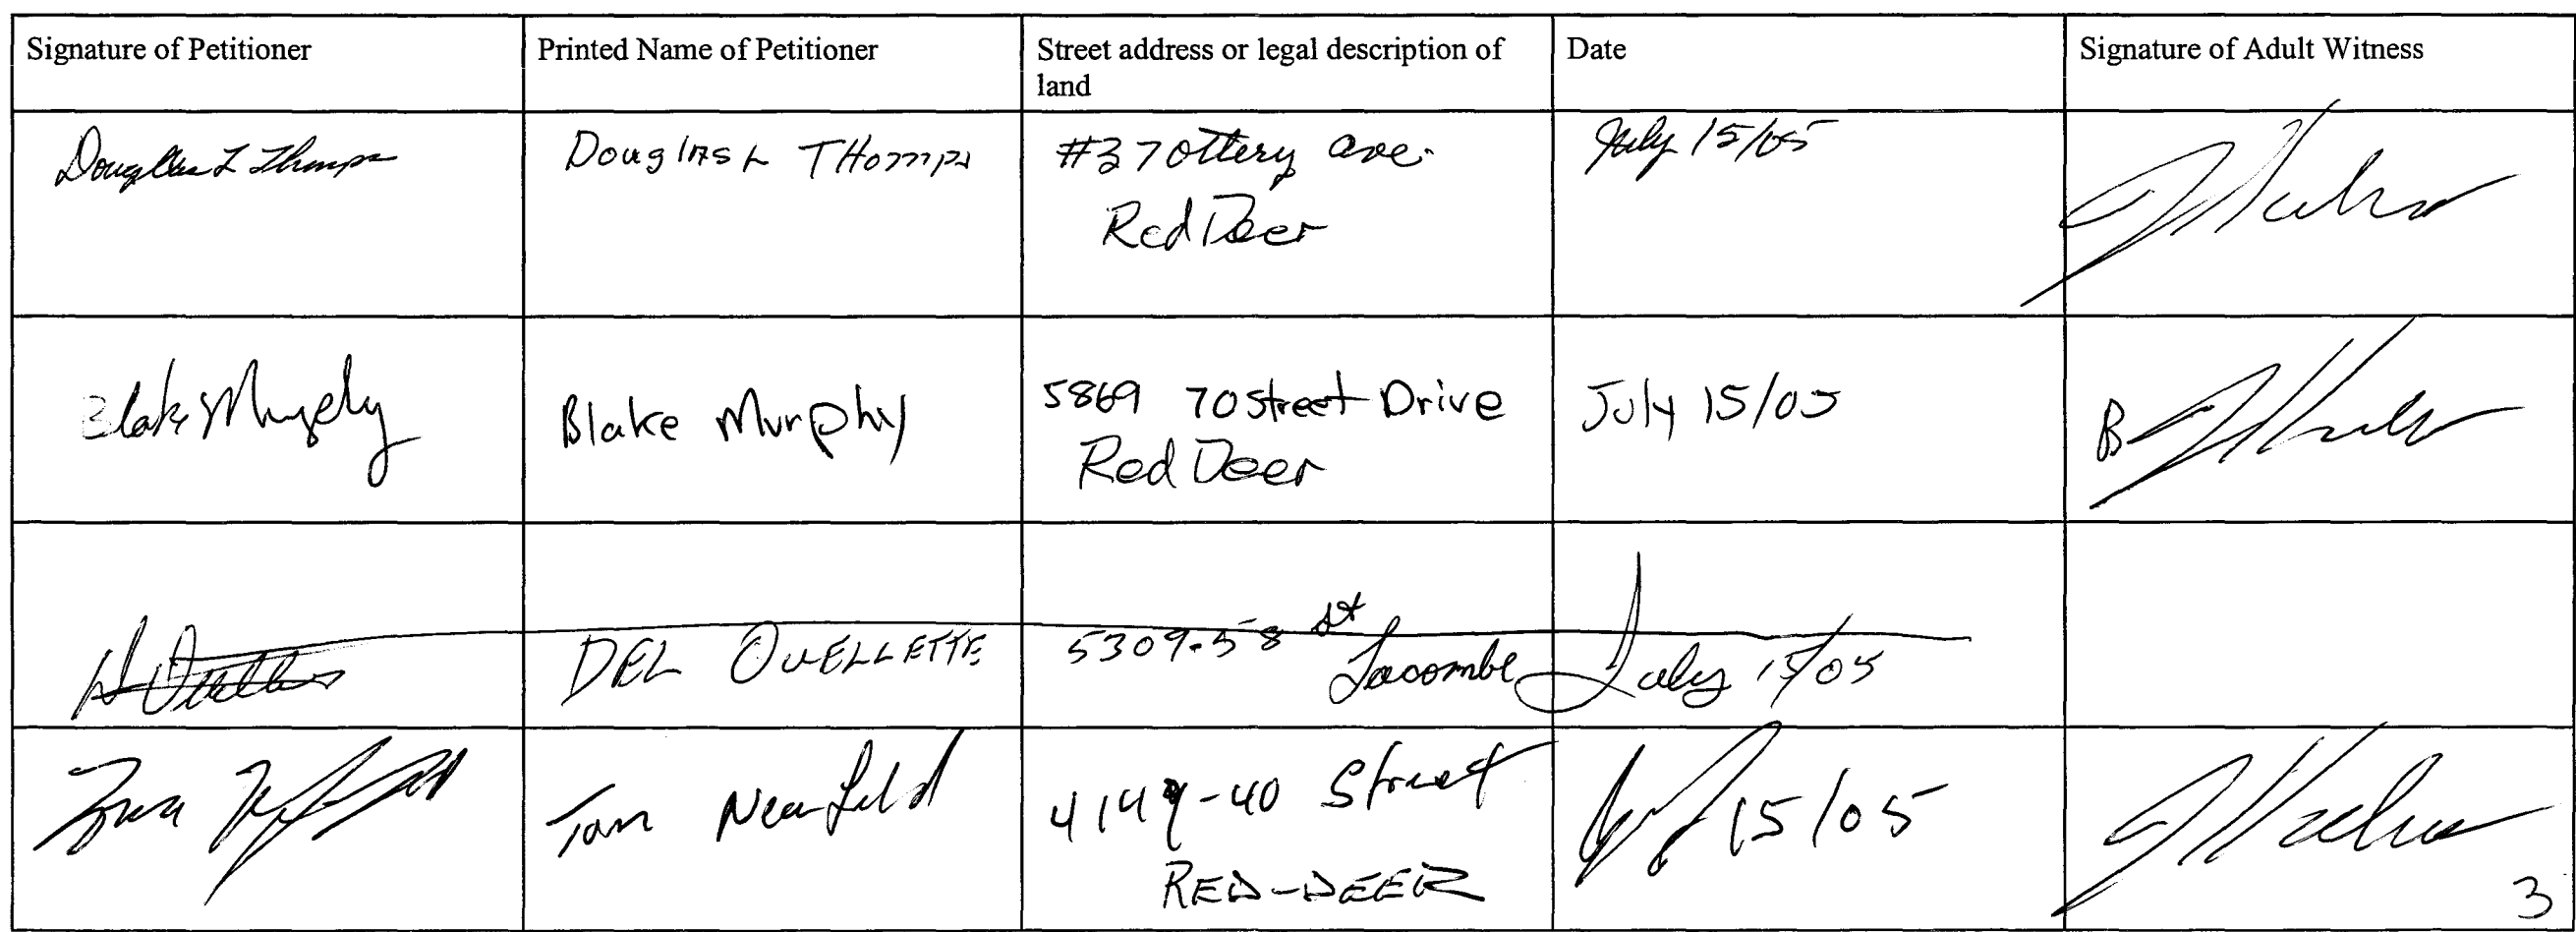 Signature of Petitioner
Printed Name of Petitioner
Street address or legal description of
land
Date
Signature of Adult Witness
Douglas L
Douglas L
#37 Ottery ave.
Red Deer
July 15/05
Blake Murphy
Blake Murphy
5869 70 Street Drive
Red Deer
July 15/05
B
DEL OUELLETTE
5309-58 St
Lacombe
July 15/05
Tom Neufeld
40 Street
RED-DEER
15/05
3